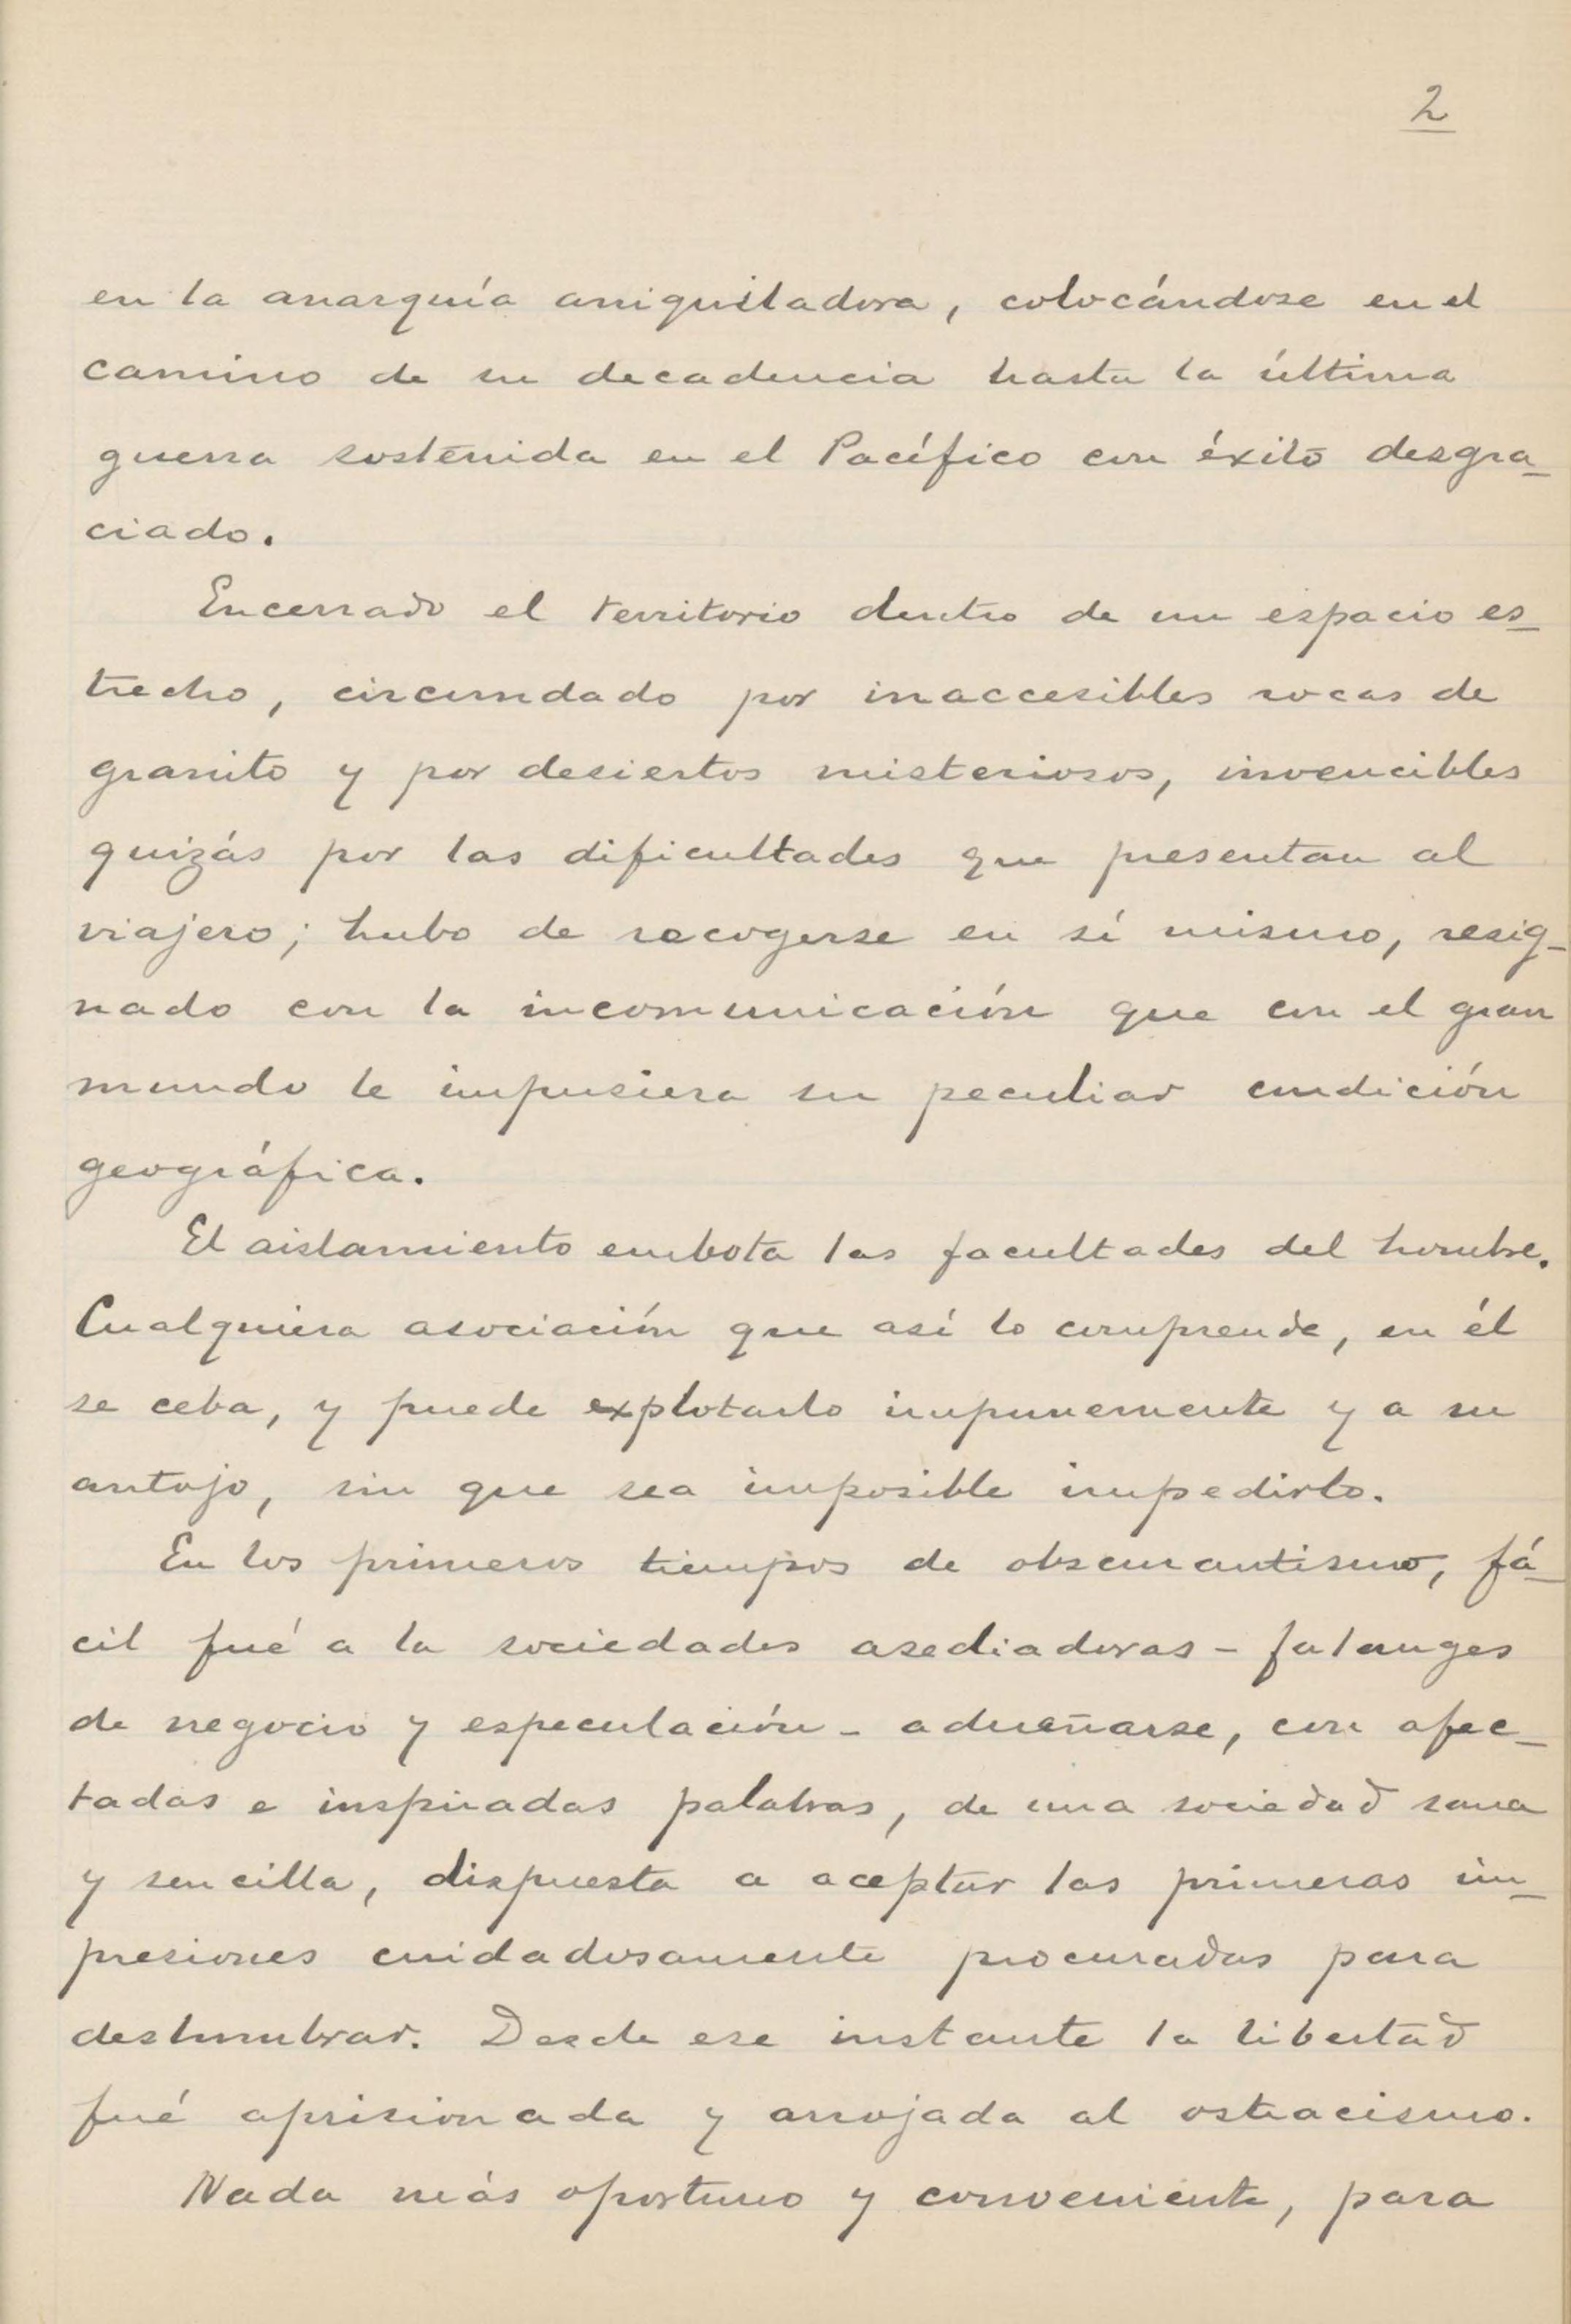 2
en la anarquía aniquiladora, colocándose en el
camino de su decadencia hasta la última
guerra sostenida en el Pacífico con éxito desgra-
ciado.
Encerrado el territorio dentro de un espacio es-
trecho, circundado por inaccesibles rocas de
granito y por desiertos misteriosos, invencibles
quizás por las dificultades que presentan al
viajero; hubo de recogerse en sí mismo, resig-
nado con la incomunicación que con el gran
mundo le impusiera su peculiar condición
geográfica.
El aislamiento embota las facultades del hombre.
Cualquiera asociación que así lo comprende, en él
se ceba, y puede explotarlo impunemente y a su
antojo, sin que sea imposible impedirlo.
En los primeros tiempos de obscurantismo, fá-
cil fué a la sociedades asediadoras - falanges
de negocio y especulación - adueñarse, con afec-
tadas e inspiradas palabras, de una sociedad sana
y sencilla, dispuesta a aceptar las primeras im-
presiones cuidadosamente procuradas para
deslumbrar. Desde ese instante la libertad
fué aprisionada y arrojada al ostracismo.
Nada más oportuno y conveniente, para